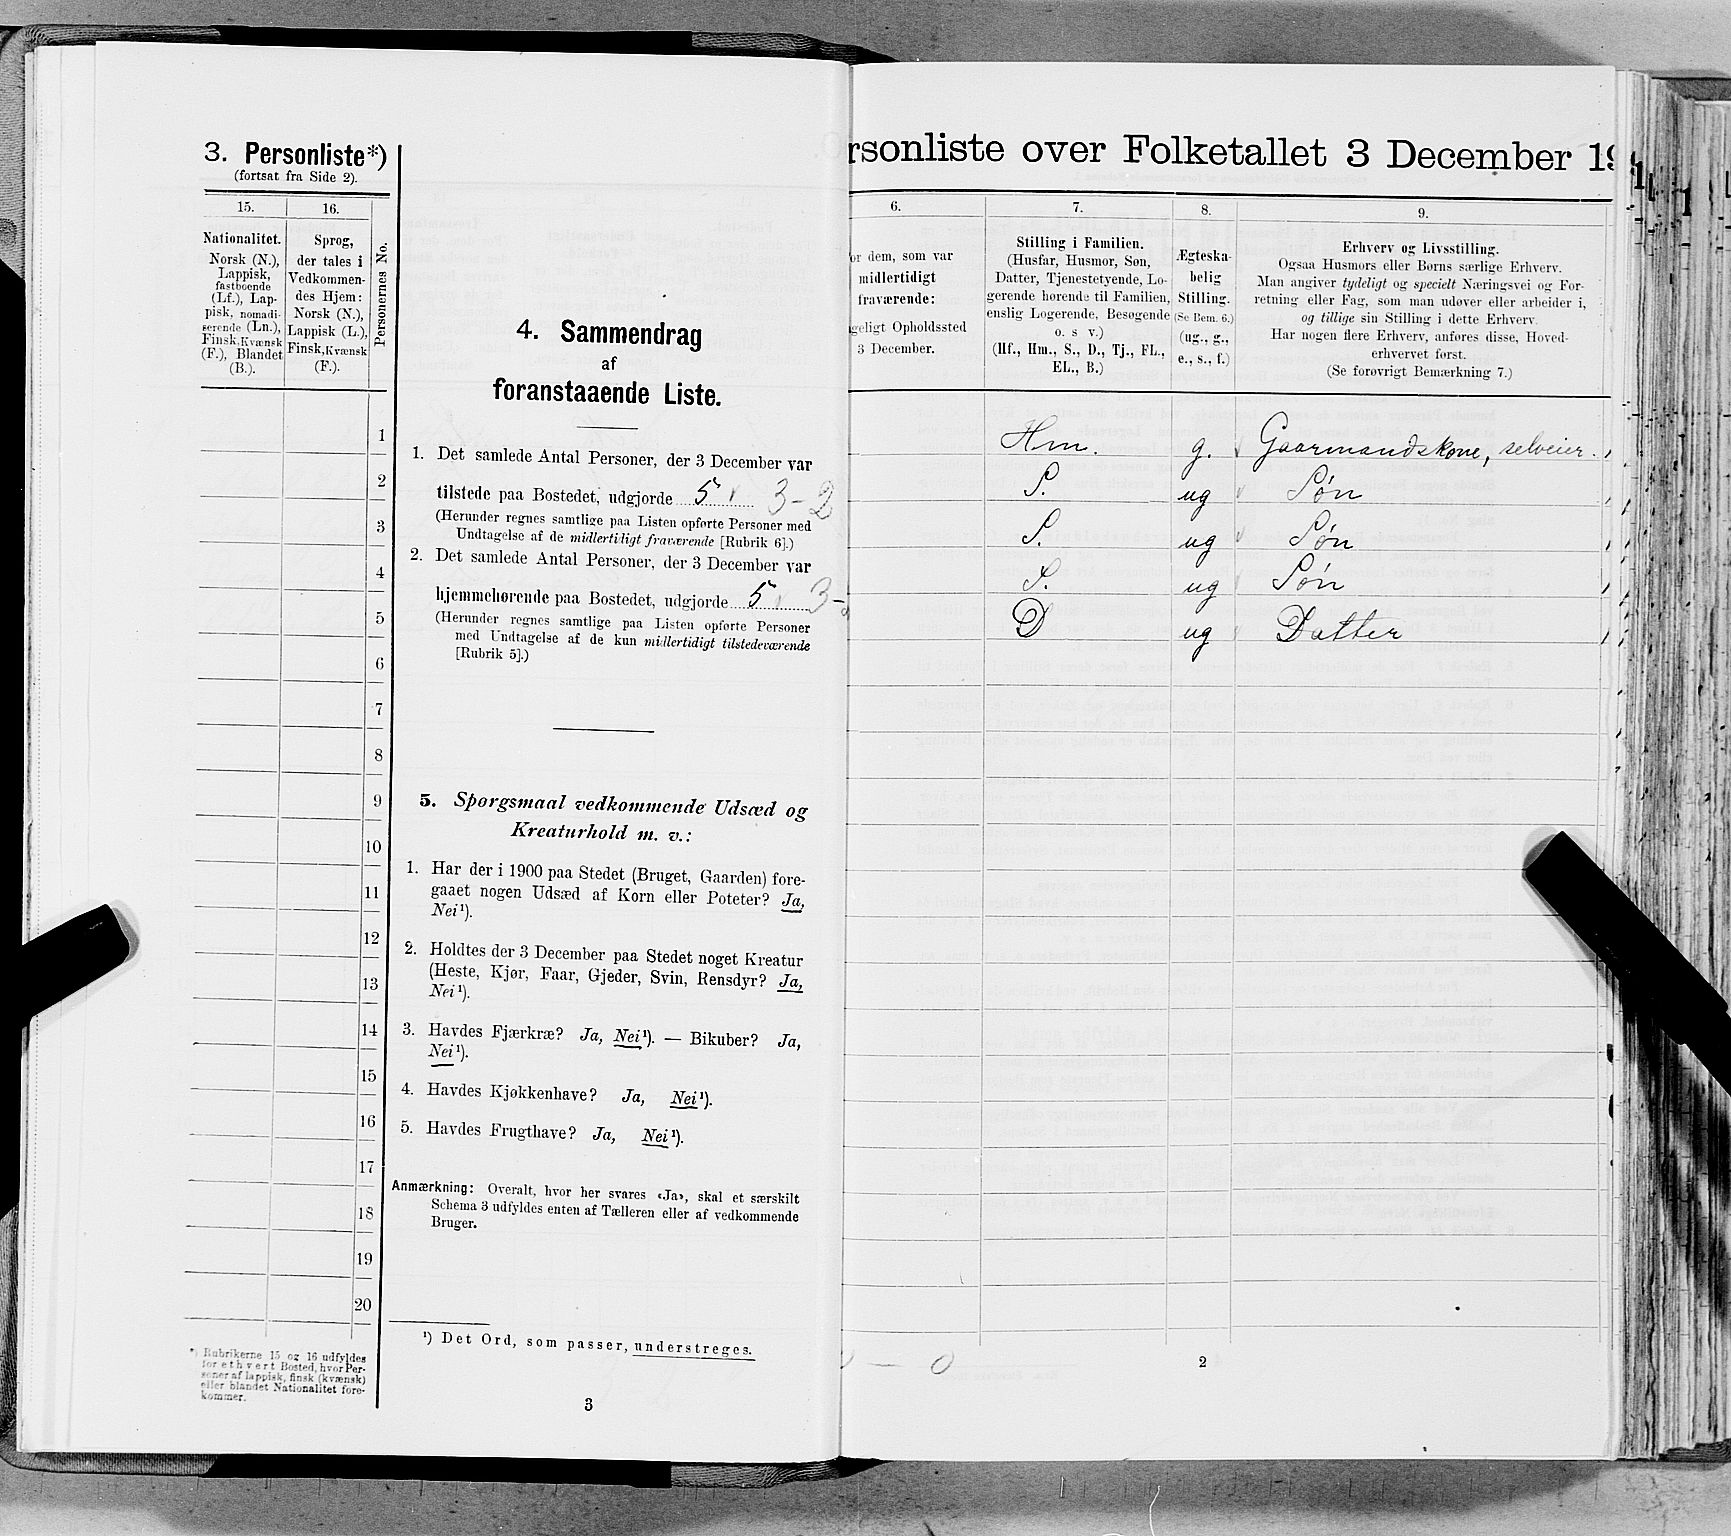 3. Personliste*)
(fortsat fra Side 2).
15.
16.
Personernes No.
Nationalitet.
Norsk (N.),
Lappisk,
fastboende
(Lf.), Lap-
pisk, nomadi-
serende (Ln.),
Finsk, Kvænsk
(F.), Blandet
(B.).
Sprog,
der tales i
Vedkommen-
des Hjem:
Norsk (N.),
Lappisk (L.),
Finsk, Kvænsk
(F.).
1
2
3
4
5
6
7
8
9
10
11
12
13
14
15
16
17
18
19
20
*) Rubrikerne 15 og 16 udfyldes
for ethvert Bosted, hvor Per-
soner af lappisk, finsk (kvænsk)
eller blandet Nationalitet fore-
kommer.
4. Sammendrag
af
foranstaaende Liste.
1. Det samlede Antal Personer, der 3 December var
tilstede paa Bostedet, udgjorde 5 3-2
(Herunder regnes samtlige paa Listen opførte Personer med
Undtagelse af de midlertidigt fraværende [Rubrik 6].)
2. Det samlede Antal Personer, der 3 December var
hjemmehørende paa Bostedet, udgjorde 5 3-2
(Herunder regnes samtlige paa Listen opførte Personer
med Undtagelse af de kun midlertidigt tilstedeværende
[Rubrik 5].)
5. Spørgsmaal vedkommende Udsæd og
Kreaturhold m. v.:
1. Har der i 1900 paa Stedet (Bruget, Gaarden) fore-
gaaet nogen Udsæd af Korn eller Poteter? Ja,
Nei¹).
2. Holdtes der 3 December paa Stedet noget Kreatur
(Heste, Kjør, Faar, Gjeder, Svin, Rensdyr? Ja,
Nei¹).
3. Havdes Fjærkræ? Ja, Nei¹). — Bikuber? Ja,
Nei¹).
4. Havdes Kjøkkenhave? Ja, Nei¹).
5. Havdes Frugthave? Ja, Nei¹).
Anmærkning: Overalt, hvor her svares «Ja», skal et særskilt
Schema 3 udfyldes enten af Tælleren eller af vedkommende
Bruger.
¹) Det Ord, som passer, understreges.
3
rsonliste over Folketallet 3 December 19
6.
7.
8.
9.
or dem, som var
midlertidigt
fraværende:
geligt Opholdssted
3 December.
Stilling i Familien.
(Husfar, Husmor, Søn,
Datter, Tjenestetyende, Lo-
gerende hørende til Familien,
enslig Logerende, Besøgende
o. s v.)
(Hf., Hm., S., D., Tj., FL.,
EL., B.)
Ægteska-
belig
Stilling.
(Se Bem. 6.)
(ug., g.,
e., s., f.)
Erhverv og Livsstilling.
Ogsaa Husmors eller Børns særlige Erhverv.
Man angiver tydeligt og specielt Næringsvei og For-
retning eller Fag, som man udøver eller arbeider i,
og tillige sin Stilling i dette Erhverv.
Har nogen flere Erhverv, anføres disse, Hoved-
erhvervet først.
(Se forøvrigt Bemærkning 7.)
Hm. g. Gaarmandskone, selveier.
S. ug Søn
S. ug Søn
S. ug Søn
D ug Datter
— 0
2